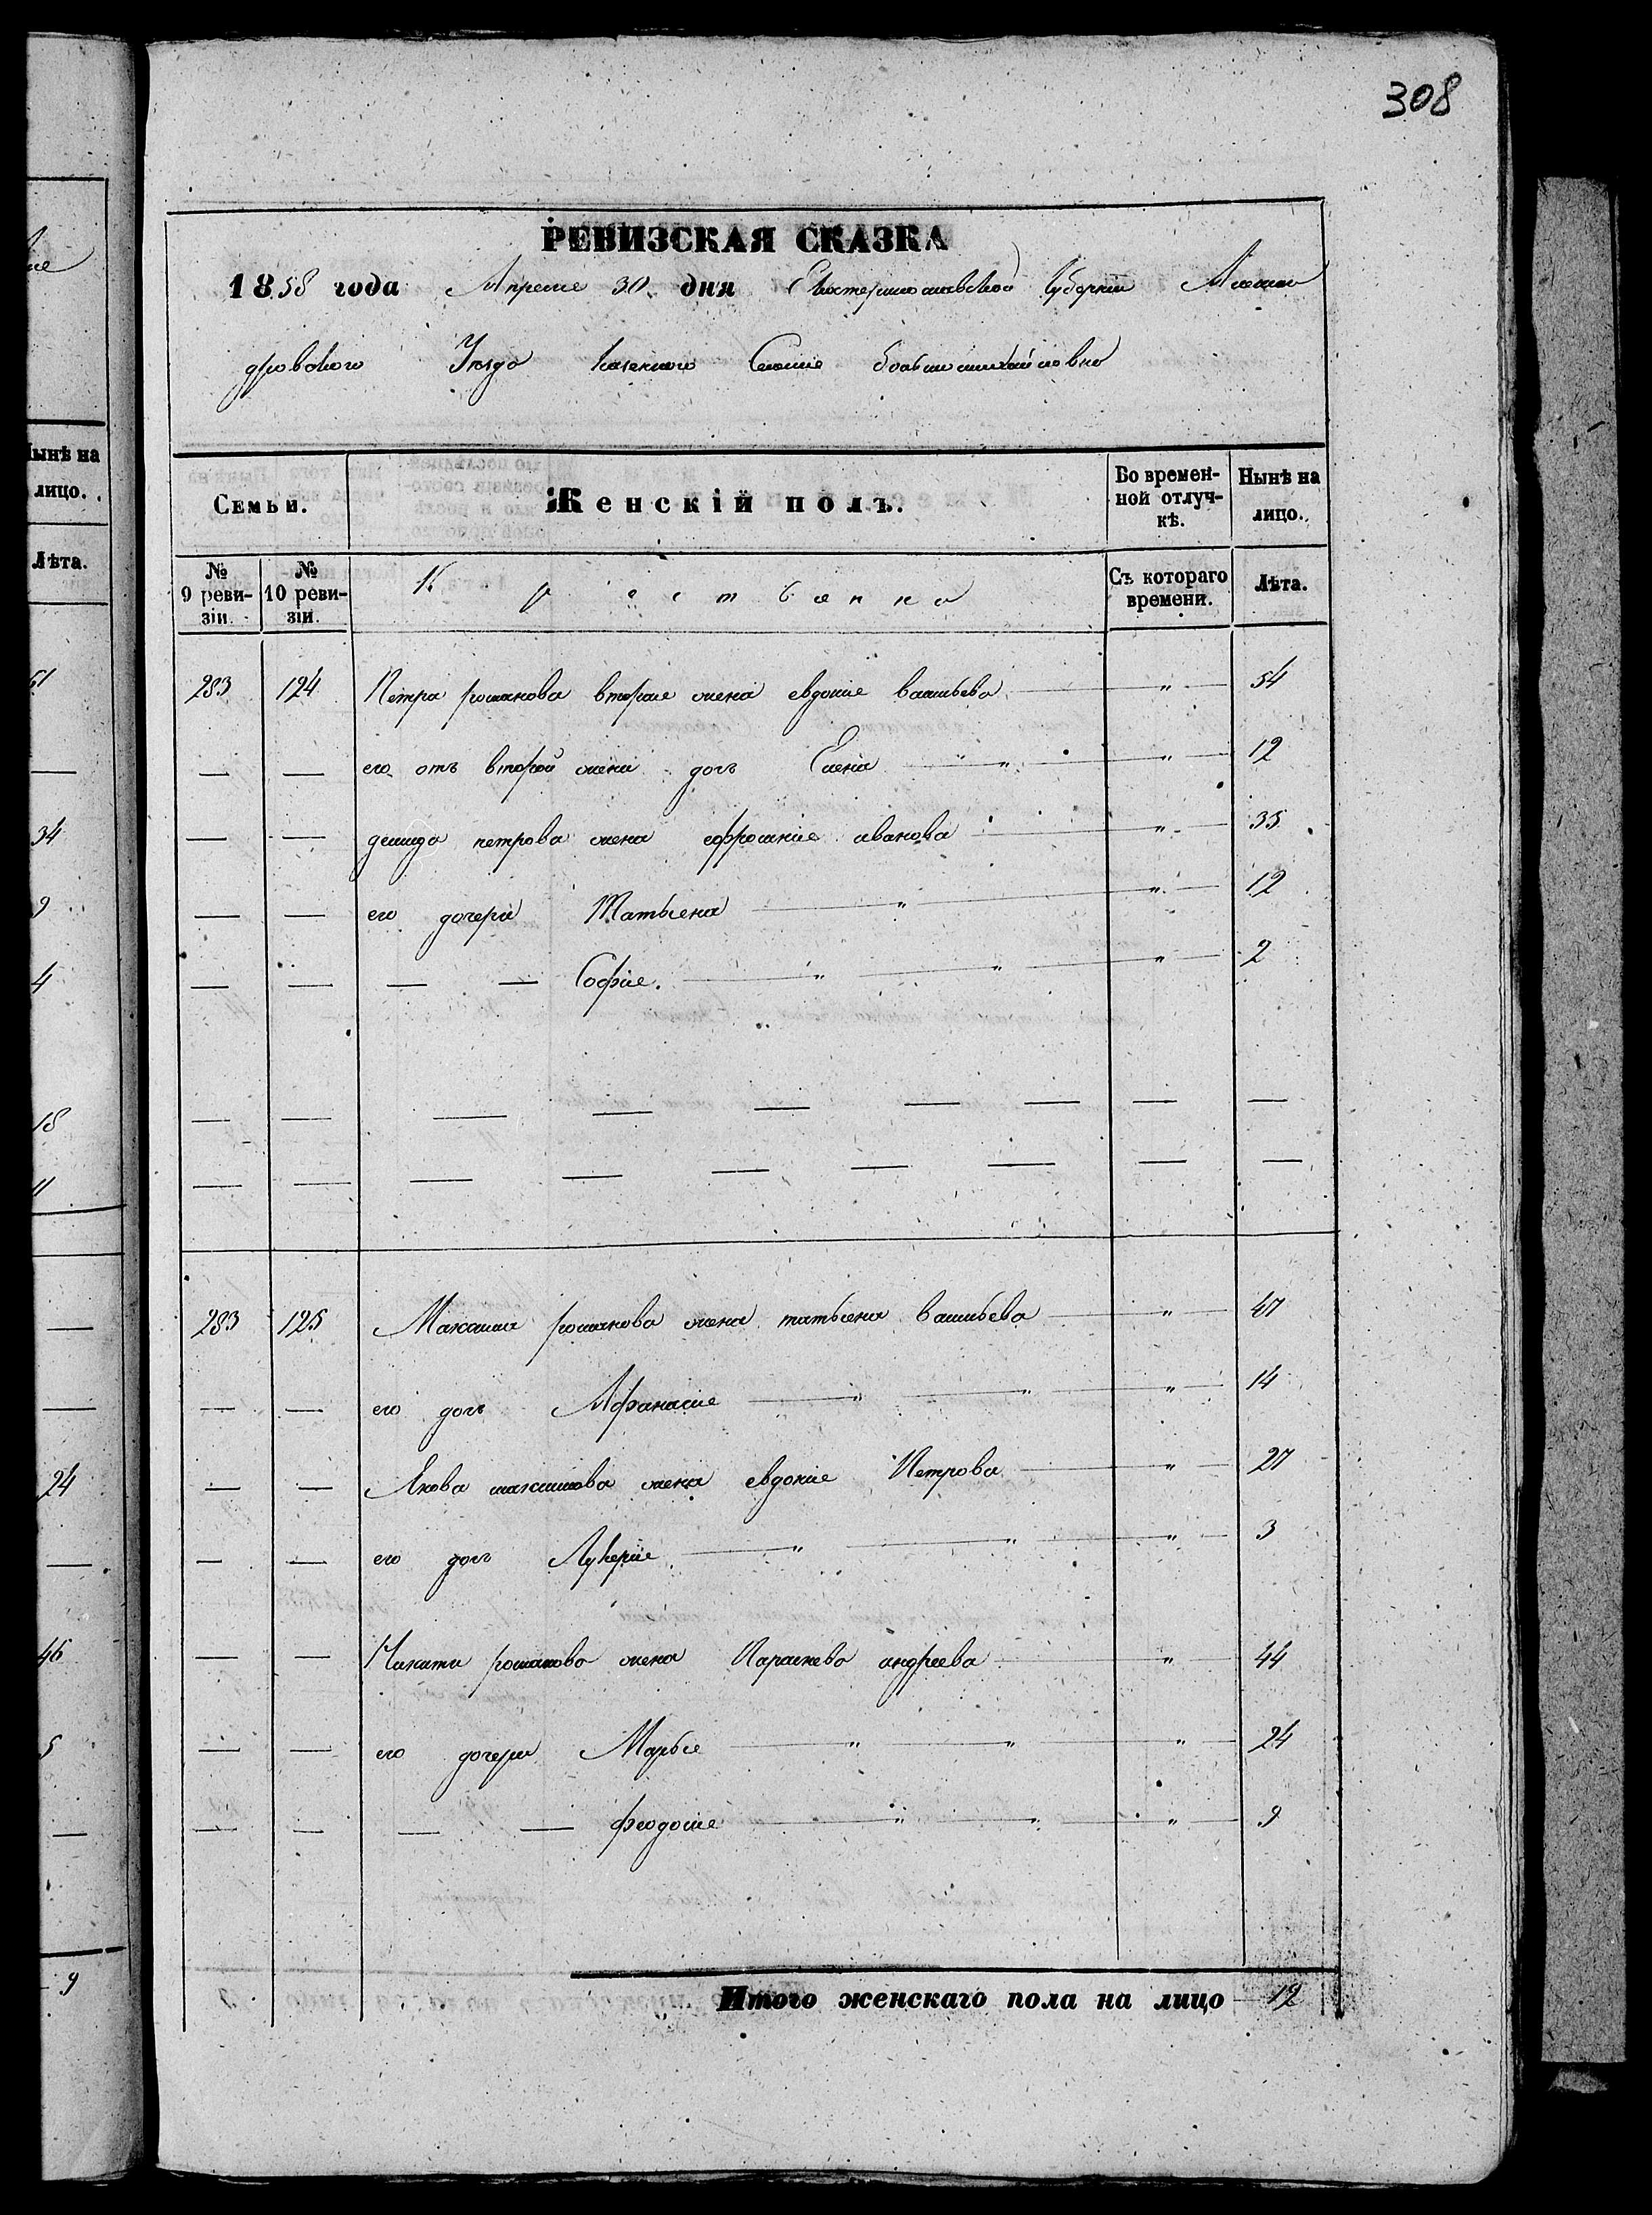 308
РЕВИЗСКАЯ СКАЗКА
1858 года Апреле 30 дня Екатеринославской Губернии Алексан
дровского Уезда казенного Селение большемихайловка
Семьи. Женскій полъ. Во времен-ной отлуч-кѣ. Нынѣ на лицо.
№ 9 реви-зіи. № 10 реви-зіи. Крестьянка Съ котораго времени. Лѣта.
283 124 Петра романова вторые жена евдокие васильева " 54
— — его отъ второй жени дочь Елена " " 12
— — демида петрова жена ефросиние иванова " 35
— — его дочери Татьяна " " 12
— — — — Софие. " " " 2
283 125 Максима романова жена татьяна васильева " 47
— — его дочь Афанасие " " " 14
— — Якова максимова жена евдокие Петрова " 27
— — его дочь Лукерие " " " 3
— — Никити романова жена Параскева андреева " 44
— — его дочери Марье " " " 24
— — — — феодосие " " " 9
Итого женскаго пола на лицо 12
ынѣ на
лицо.
Лѣта.
61
34
9
4
18
11
24
46
5
9